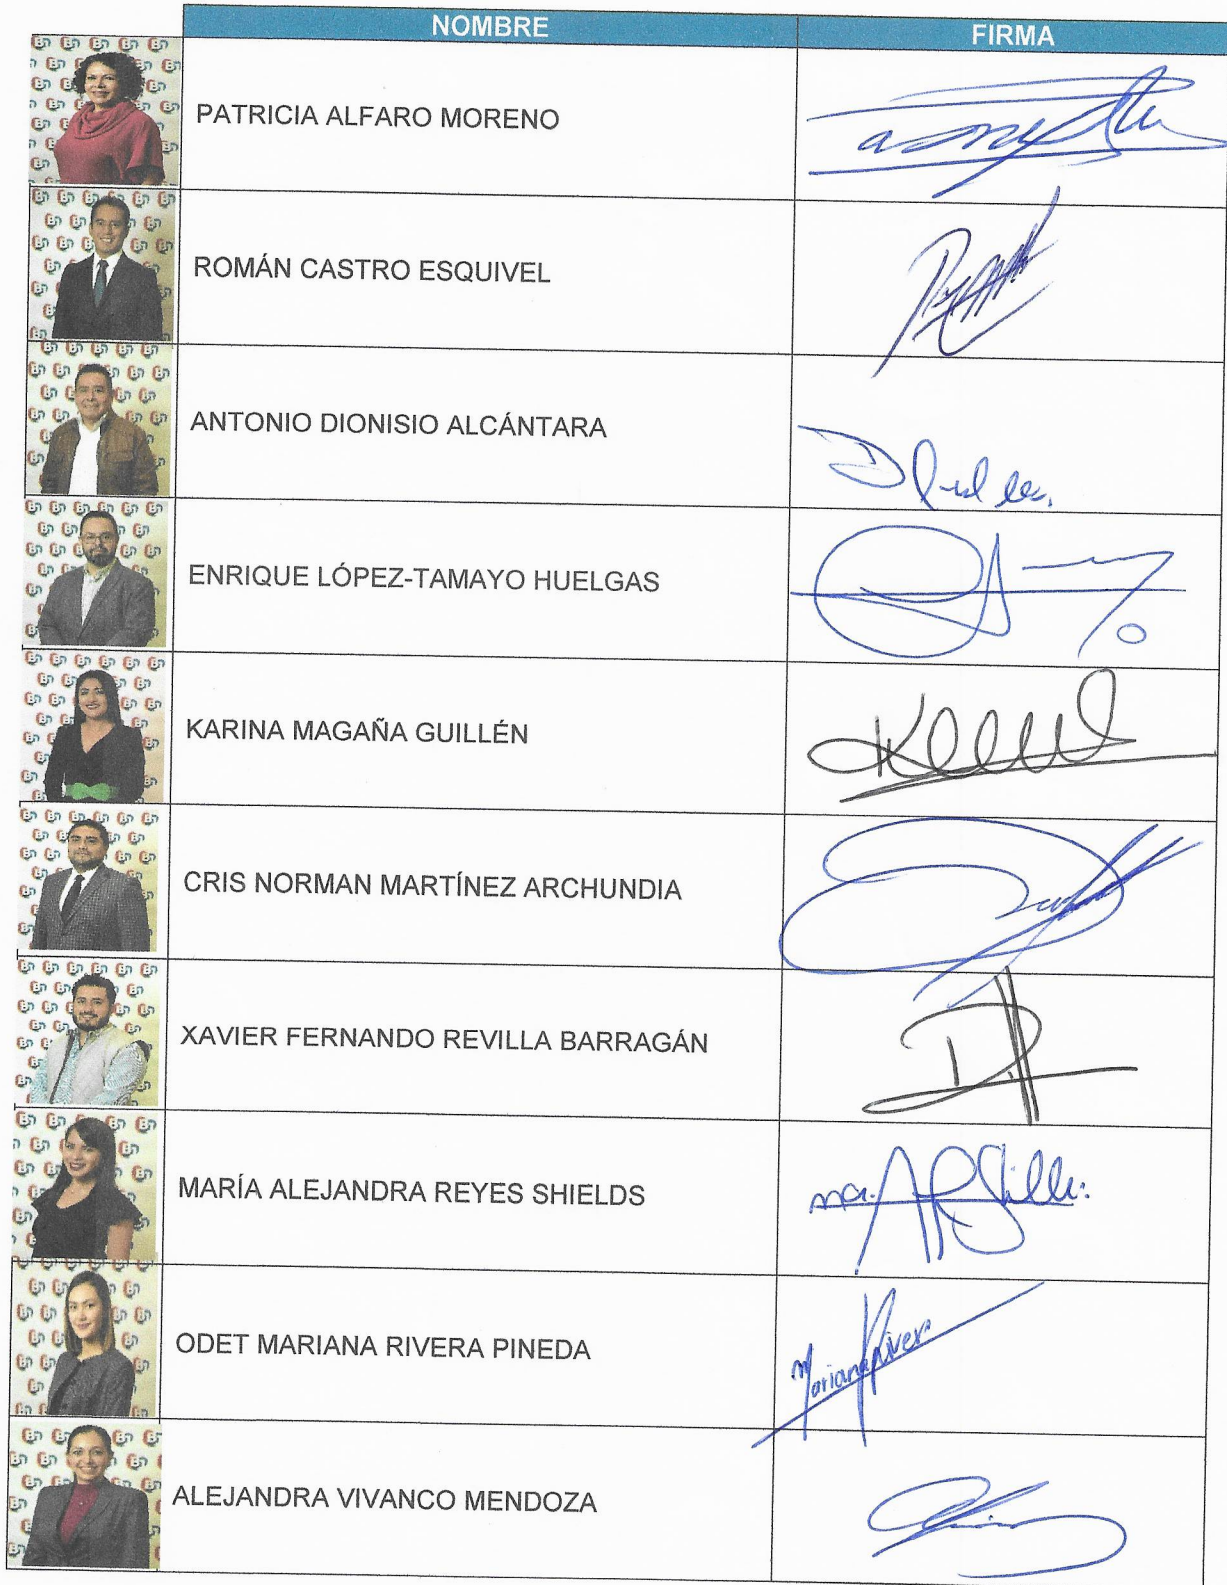 NOMBRE FIRMA
PATRICIA ALFARO MORENO
ROMÁN CASTRO ESQUIVEL
ANTONIO DIONISIO ALCÁNTARA
ENRIQUE LÓPEZ-TAMAYO HUELGAS
KARINA MAGAÑA GUILLÉN
CRIS NORMAN MARTÍNEZ ARCHUNDIA
XAVIER FERNANDO REVILLA BARRAGÁN
MARÍA ALEJANDRA REYES SHIELDS
ODET MARIANA RIVERA PINEDA
Mariana River
ALEJANDRA VIVANCO MENDOZA